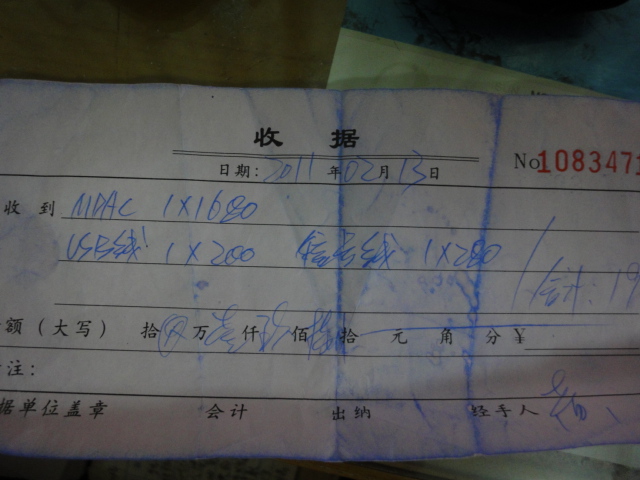 收 据
日期: 2011 年 02 月 13 日 No 1083471
收 到 MDAC 1X1680
USB线 1X200 信号线 1X280
合计: 19
额(大写) 拾 万 仟 佰 拾 元 角 分 ¥
注:
据单位盖章 会计 出纳 经手人